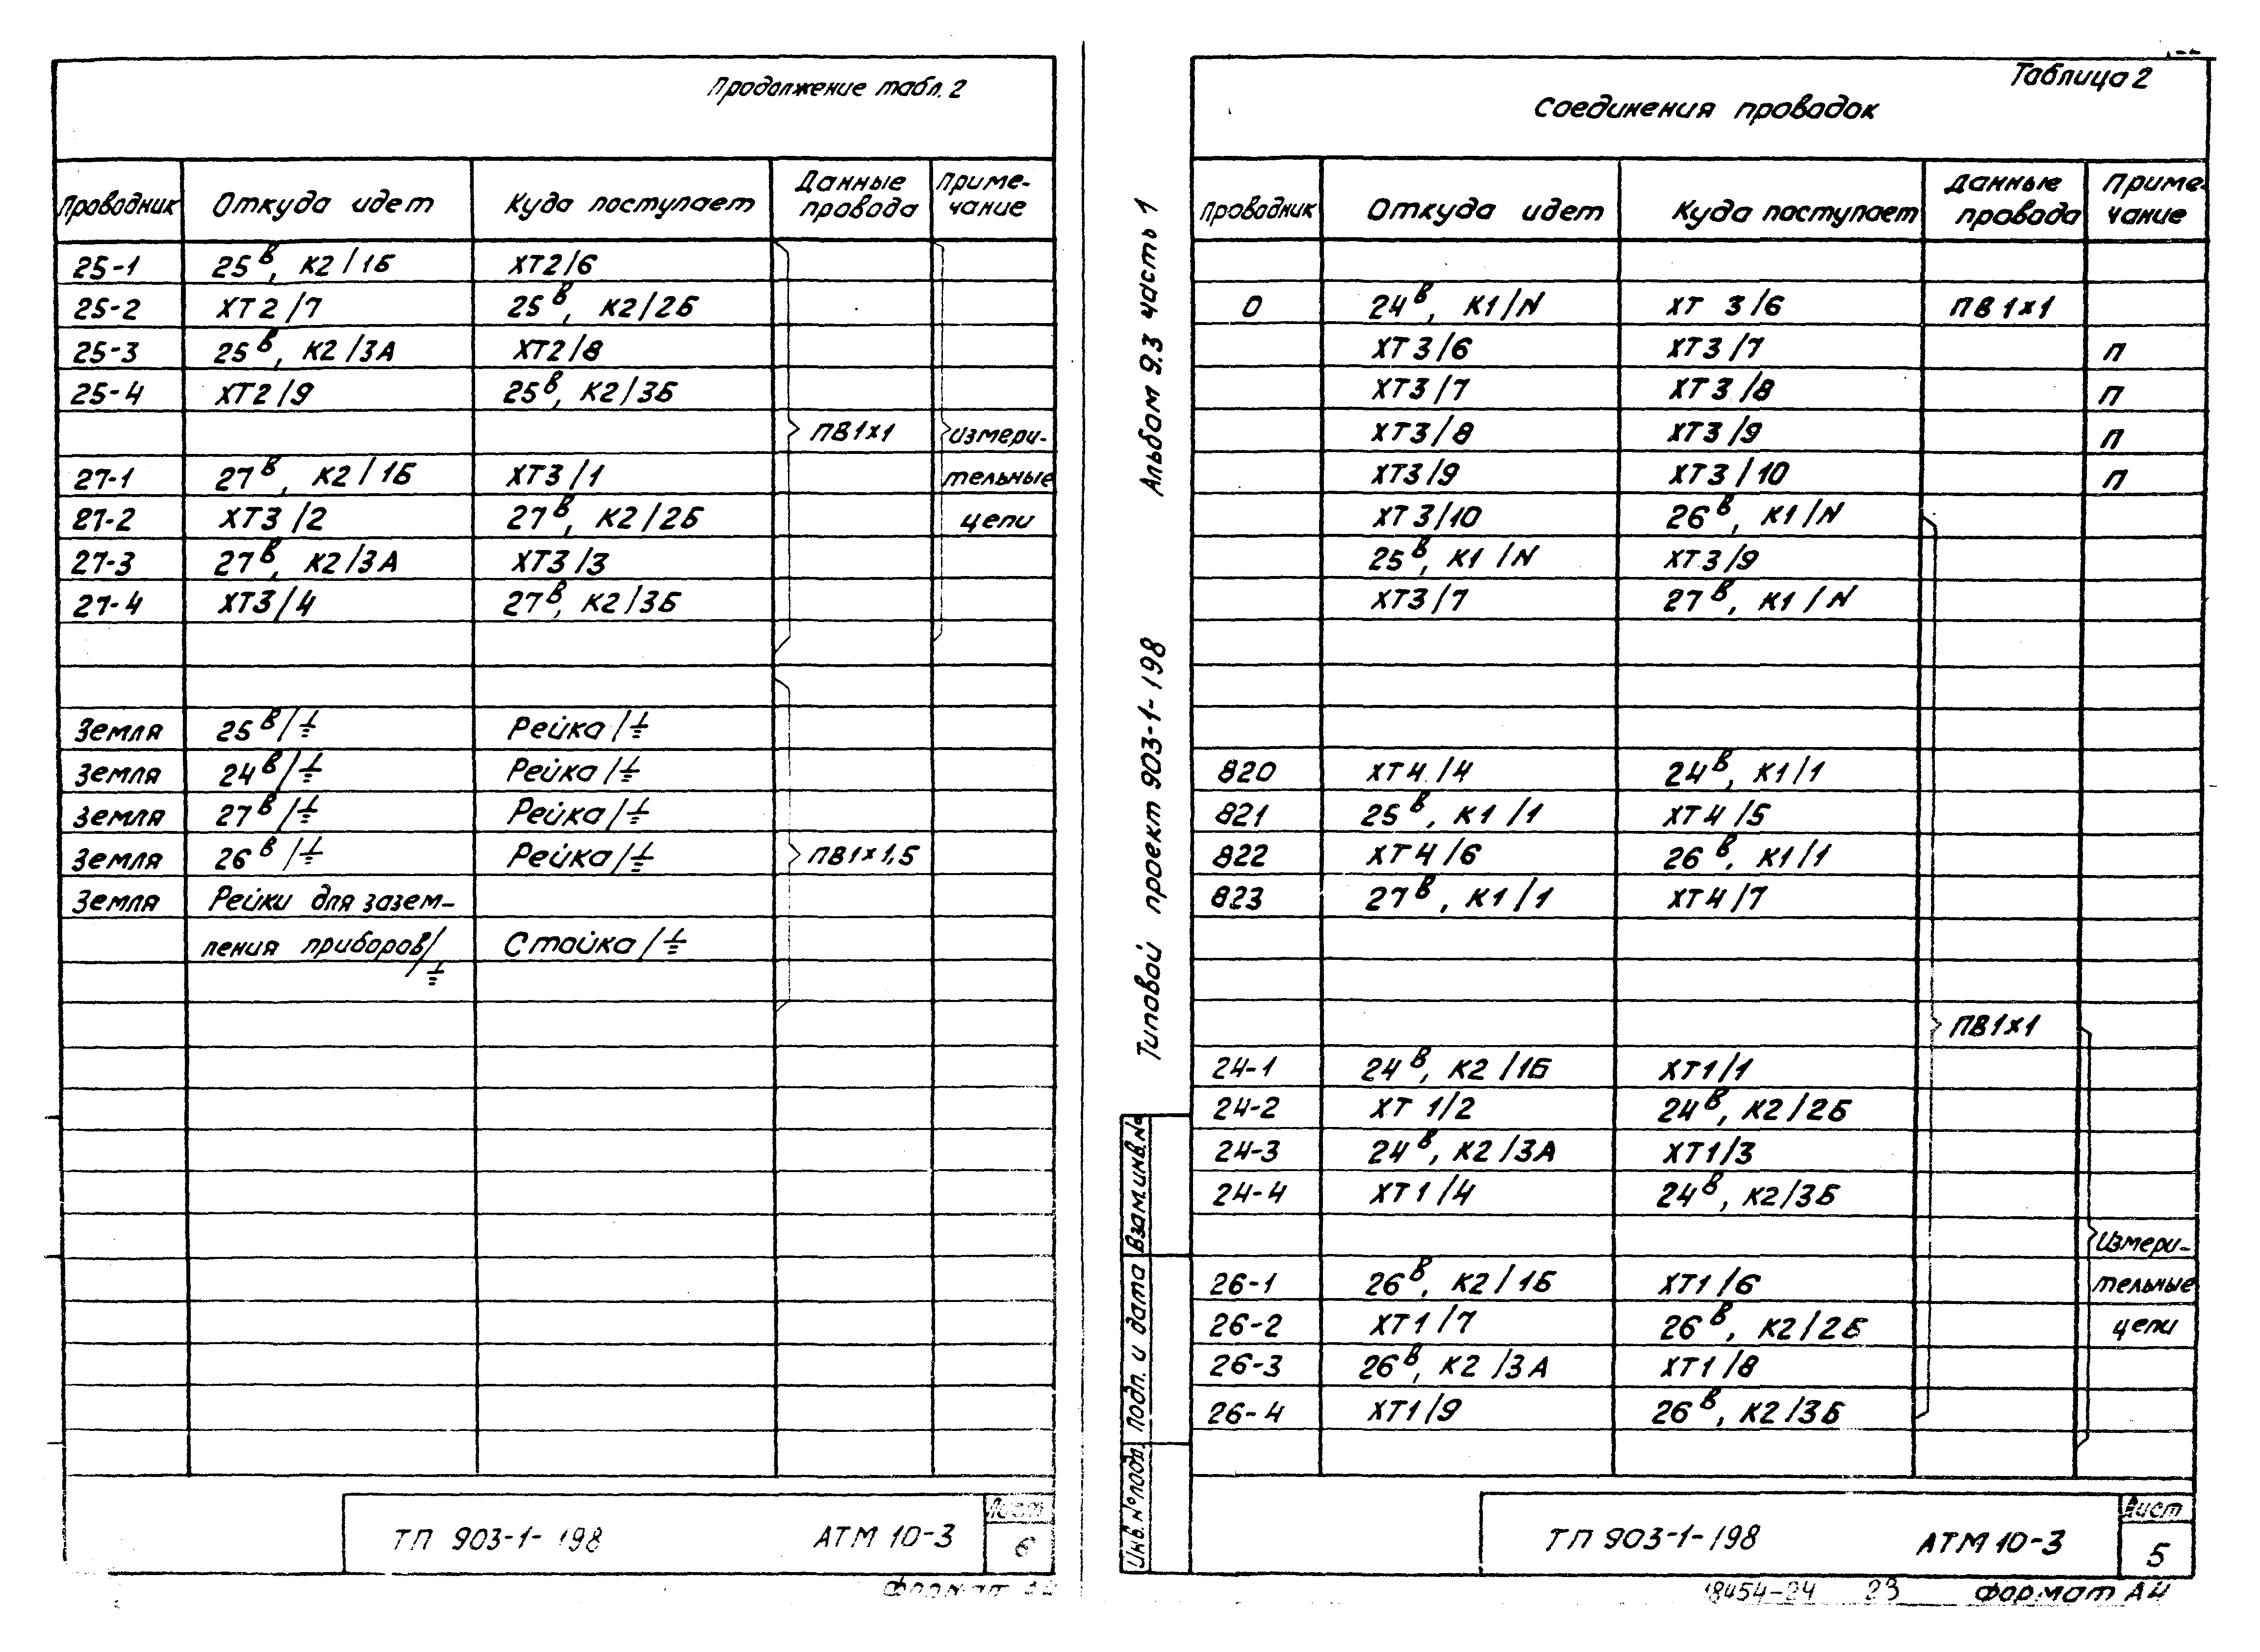 Продолжение табл. 2
Проводник Откуда идет Куда поступает Данные провода Приме-чание
25-1 25в, К2/1Б ХТ2/6
25-2 ХТ2/7 25в, К2/2Б
25-3 25в, К2/3А ХТ2/8
25-4 ХТ2/9 25в, К2/3Б
ПВ1х1 Измери-
27-1 27в, К2/1Б ХТ3/1 тельные
27-2 ХТ3/2 27в, К2/2Б цепи
27-3 27в, К2/3А ХТ3/3
27-4 ХТ3/4 27в, К2/3Б
Земля 25в/⏚ Рейка/⏚
Земля 24в/⏚ Рейка/⏚
Земля 27в/⏚ Рейка/⏚
Земля 26в/⏚ Рейка/⏚ ПВ1х1,5
Земля Рейки для зазем-
ления приборов/⏚ Стойка/⏚
ТП 903-1-198 АТМ 10-3 Лист
6
Формат
Альбом 9.3 часть 1
Типовой проект 903-1-198
Взам.инв.№
Подп. и дата
Инв.№подл.
Таблица 2
Соединения проводок
Проводник Откуда идет Куда поступает Данные провода Приме-чание
0 24в, К1/N ХТ 3/6 ПВ1х1
ХТ3/6 ХТ3/7 П
ХТ3/7 ХТ3/8 П
ХТ3/8 ХТ3/9 П
ХТ3/9 ХТ3/10 П
ХТ3/10 26в, К1/N
25в, К1/N ХТ3/9
ХТ3/7 27в, К1/N
820 ХТ4/4 24в, К1/1
821 25в, К1/1 ХТ4/5
822 ХТ4/6 26в, К1/1
823 27в, К1/1 ХТ4/7
ПВ1х1
24-1 24в, К2/1Б ХТ1/1
24-2 ХТ 1/2 24в, К2/2Б
24-3 24в, К2/3А ХТ1/3
24-4 ХТ1/4 24в, К2/3Б
Измери-
26-1 26в, К2/1Б ХТ1/6 тельные
26-2 ХТ1/7 26в, К2/2Б цепи
26-3 26в, К2/3А ХТ1/8
26-4 ХТ1/9 26в, К2/3Б
ТП 903-1-198 АТМ 10-3 Лист
5
18454-24 23 Формат А4